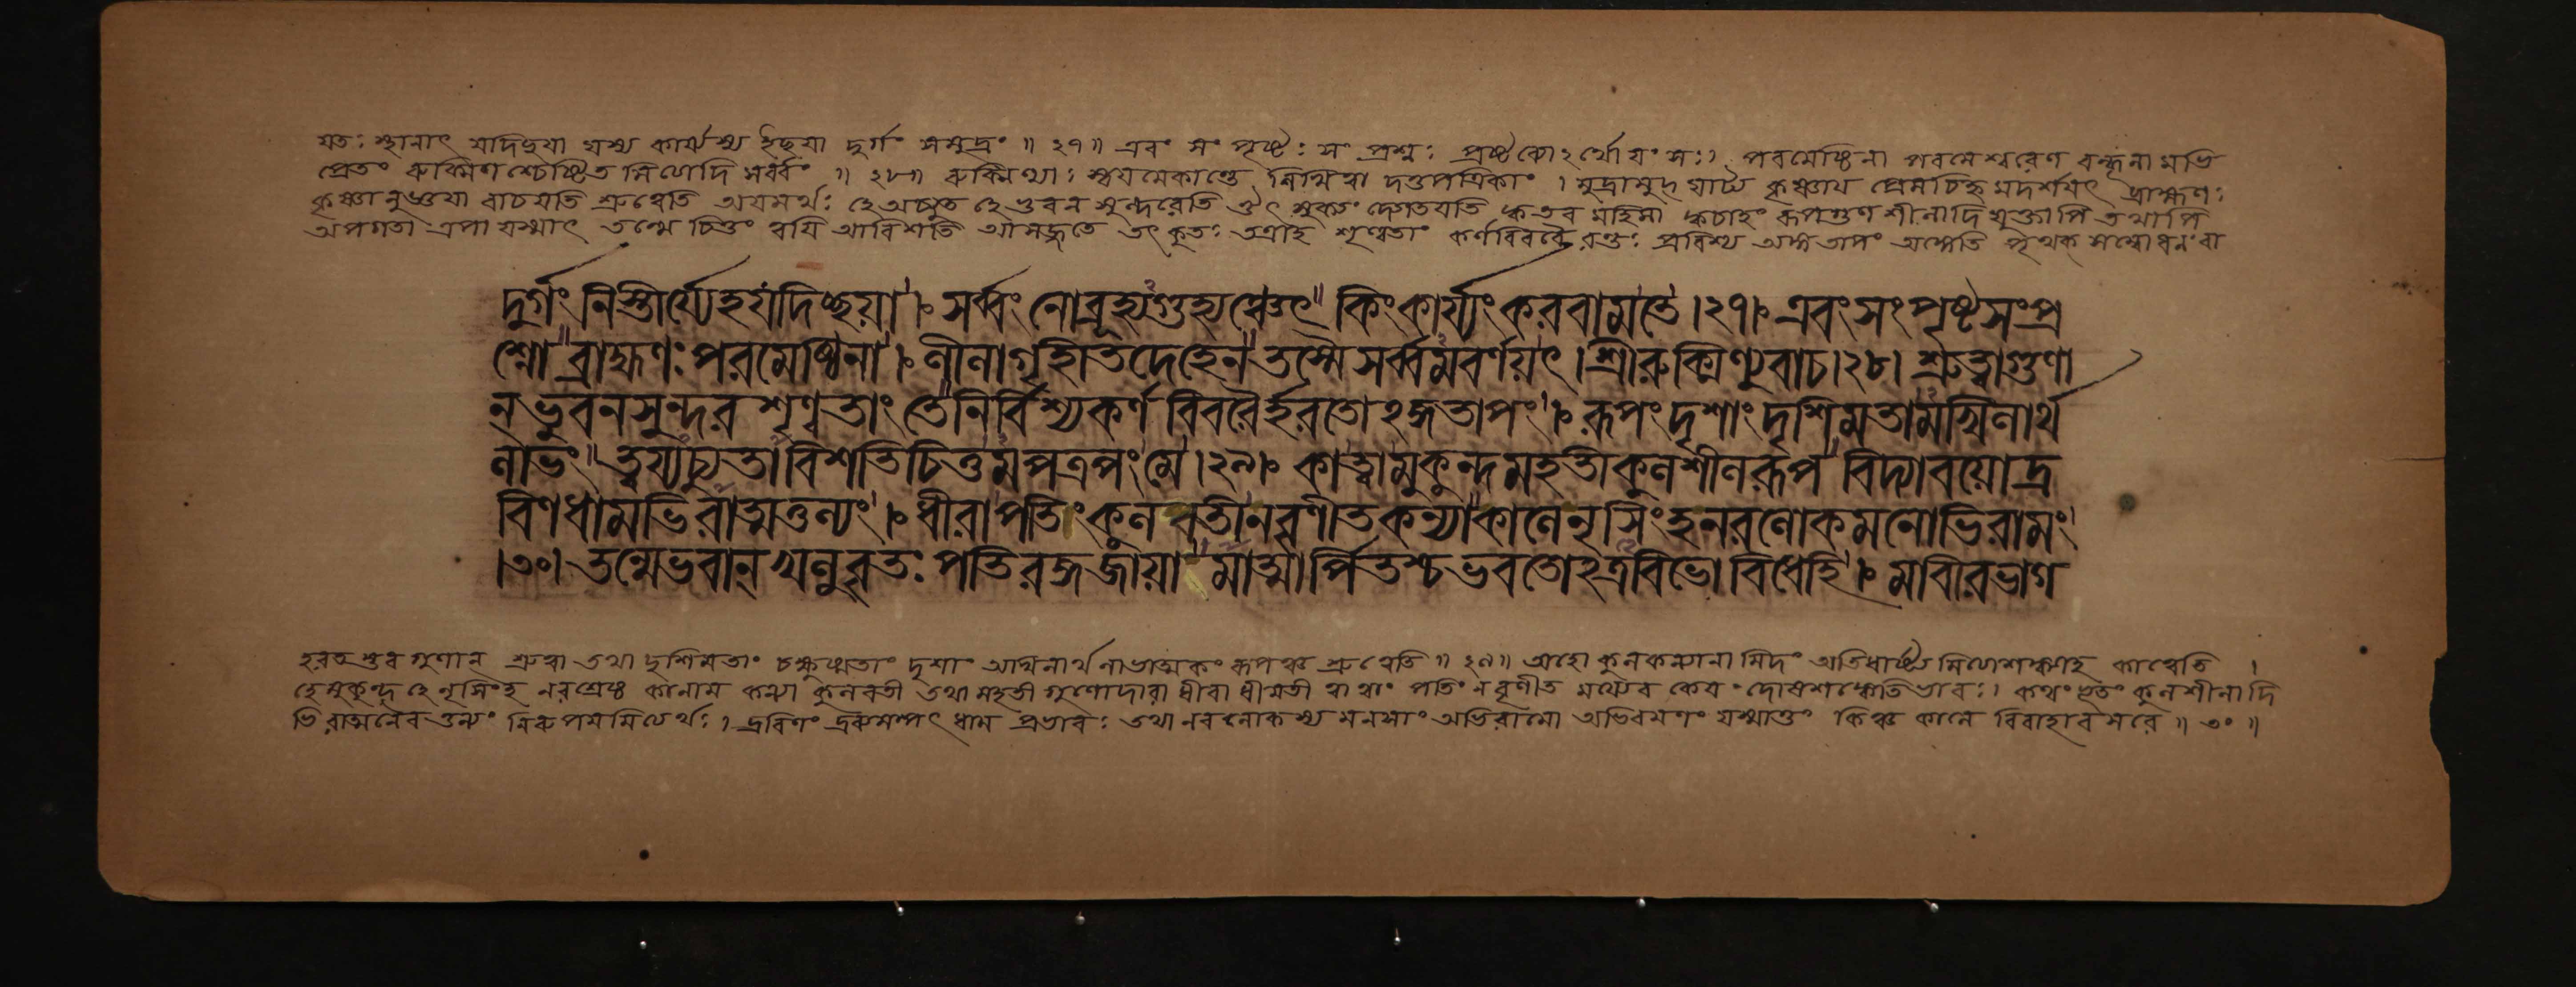 যতঃ স্থানাৎ যদিচ্ছয়া যস্য কার্যস্য ইচ্ছয়া দুর্গং সমুদ্রং ॥ ২৭॥ এবং সংপৃষ্টঃ সংপ্রশ্নঃ প্রষ্টব্যোঽর্থো যংসঃ। পরমেষ্ঠিনা পরমেশ্বরেণ বন্ধূনামভি
প্রেতং রুক্মিণশ্চেষ্টিতমিত্যাদি সর্বং ॥ ২৮॥ রুক্মিণ্যা স্বয়মেকান্তে লিখিত্বা দত্তপত্রিকাং । মুদ্রামুদ্ঘাট্য কৃষ্ণায় প্রেমচিহ্নমদর্শয়ৎ ব্রাহ্মণঃ
কৃষ্ণানুজ্ঞয়া বাচয়তি শ্রুত্বেতি অয়মর্থঃ হে অচ্যুত হে ভুবনসুন্দরেতি ঔৎসুক্যং দ্যোতয়তি ক্ব তব মহিমা ক্ব চাহং রূপগুণশীলাদিযুক্তাপি তথাপি
অপগতা ত্রপা যস্মাৎ তন্মে চিত্তং ত্বয়ি আবিশতি আসজ্জতে তৎ কুতঃ তত্রাহ শৃণ্বতাং কর্ণবিবরৈরন্তঃ প্রবিশ্য অঙ্গতাপং অঙ্গেতি পৃথক্ সম্বোধনং বা
দুর্গং নিস্তীর্য্যেহ যদিচ্ছয়া । সর্ব্বং নো ব্রূহ্যগুহ্যঞ্চেৎ কিং কার্য্যং করবাম তে ।২৭। এবং সংপৃষ্টসংপ্র
শ্নো ব্রাহ্মণঃ পরমেষ্ঠিনা । লীলাগৃহীতদেহেন তস্মৈ সর্ব্বমবর্ণয়ৎ । শ্রীরুক্মিণ্যুবাচ।২৮। শ্রুত্বা গুণা
ন্ ভুবনসুন্দর শৃণ্বতাং তে নির্বিশ্য কর্ণবিবরৈর্হরতোঽঙ্গতাপং । রূপং দৃশাং দৃশিমতামখিলার্থ
লাভং ত্বয্যচ্যুতাবিশতি চিত্তমপত্রপং মে ।২৯। কা ত্বা মুকুন্দ মহতী কুলশীলরূপ বিদ্যাবয়োদ্র
বিণধামভিরাত্মতুল্যং । ধীরা পতিং কুলবতী ন বৃণীত কন্যা কালে নৃসিংহ নরলোকমনোভিরামং
।৩০। তন্মে ভবান্ খলু বৃতঃ পতিরঙ্গ জায়া মাত্মার্পিতশ্চ ভবতোঽত্র বিভো বিধেহি । মা বীরভাগ
হরতস্তব গুণান্ শ্রুত্বা তথা দৃশিমতাং চক্ষুষ্মতাং দৃশাং অখিলার্থলাভাত্মকং রূপঞ্চ শ্রুত্বেতি ॥ ২৯॥ অহো কুলকন্যানামিদং অতিধার্ষ্ট্যমিত্যাশঙ্ক্যাহ কা ত্বেতি ।
হে মুকুন্দ হে নৃসিংহ নরশ্রেষ্ঠ কা নাম কন্যা কুলবতী তথা মহতী গুণোদারা ধীরা ধীমতী ত্বা ত্বাং পতিং ন বৃণীত ময্যেব কেয়ং দোষাশঙ্কেতি ভাবঃ। কথং ভূতং কুলশীলাদি
ভিরাত্মনৈব তুল্যং নিরুপমমিত্যর্থঃ। দ্রবিণং দ্রব্যসম্পৎ ধাম প্রভাবঃ তথা নরলোকস্য মনসাং অভিরামো অভিরমণং যস্মাত্তং কিঞ্চ কালে বিবাহাবসরে ॥ ৩০ ॥